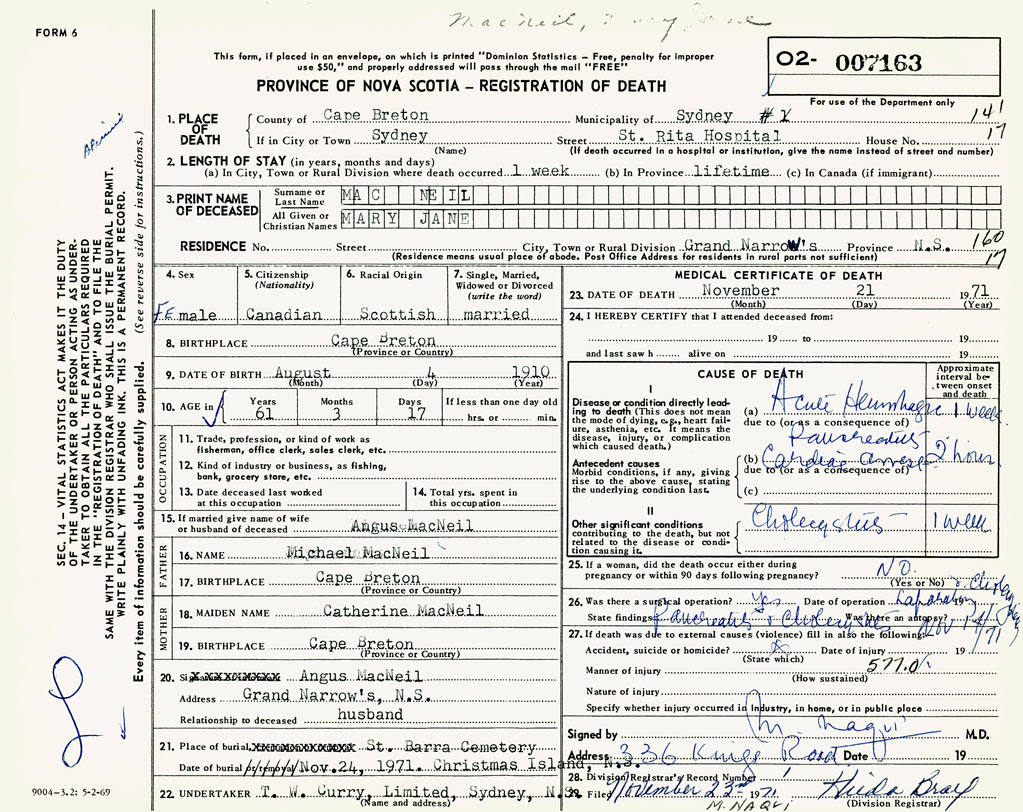 FORM 6
MacNeil, Mary Jane
This form, if placed in an envelope, on which is printed "Dominion Statistics – Free, penalty for improper
use $50," and properly addressed will pass through the mail "FREE"
O2- 007163
PROVINCE OF NOVA SCOTIA – REGISTRATION OF DEATH
For use of the Department only
1. PLACE OF DEATH
County of Cape Breton Municipality of Sydney # 1 141
If in City or Town Sydney Street St. Rita Hospital House No. 17
(Name) (If death occurred in a hospital or institution, give the name instead of street and number)
2. LENGTH OF STAY (in years, months and days)
(a) In City, Town or Rural Division where death occurred 1 week (b) In Province lifetime (c) In Canada (if immigrant)
3. PRINT NAME OF DECEASED
Surname or Last Name MAC NEIL
All Given or Christian Names MARY JANE
RESIDENCE No. Street City, Town or Rural Division Grand Narrow's Province N.S. 160
(Residence means usual place of abode. Post Office Address for residents in rural parts not sufficient) 17
4. Sex
FEmale
5. Citizenship
(Nationality)
Canadian
6. Racial Origin
Scottish
7. Single, Married,
Widowed or Divorced
(write the word)
married
8. BIRTHPLACE Cape Breton
(Province or Country)
9. DATE OF BIRTH August 4 1910
(Month) (Day) (Year)
10. AGE in
Years Months Days If less than one day old
61 3 17 hrs. or min.
OCCUPATION
11. Trade, profession, or kind of work as
fisherman, office clerk, sales clerk, etc.
12. Kind of industry or business, as fishing,
bank, grocery store, etc.
13. Date deceased last worked
at this occupation
14. Total yrs. spent in
this occupation
15. If married give name of wife
or husband of deceased Angus MacNeil
FATHER
16. NAME Michael MacNeil
17. BIRTHPLACE Cape Breton
(Province or Country)
MOTHER
18. MAIDEN NAME Catherine MacNeil
19. BIRTHPLACE Cape Breton
(Province or Country)
20. Angus MacNeil
Address Grand Narrow's, N.S.
Relationship to deceased husband
21. Place of burial, St. Barra Cemetery
Date of burial Nov.24, 1971. Christmas Island, N.S.
22. UNDERTAKER T. W. Curry, Limited, Sydney, N.S.
(Name and address)
MEDICAL CERTIFICATE OF DEATH
23. DATE OF DEATH November 21 1971
(Month) (Day) (Year)
24. I HEREBY CERTIFY that I attended deceased from:
19 to 19
and last saw h alive on 19
CAUSE OF DEATH
Approximate
interval be-
tween onset
and death
I
Disease or condition directly lead-
ing to death (This does not mean
the mode of dying, e.g., heart fail-
ure, asthenia, etc. It means the
disease, injury, or complication
which caused death.)
(a) Acute Hemorrhagic 1 week
due to (or as a consequence of)
Pancreatitis
Antecedent causes
Morbid conditions, if any, giving
rise to the above cause, stating
the underlying condition last.
(b) Cardiac arrest 2 hours
due to (or as a consequence of)
(c)
II
Other significant conditions
contributing to the death, but not
related to the disease or condi-
tion causing it.
Cholecystitis 1 week
25. If a woman, did the death occur either during
pregnancy or within 90 days following pregnancy? NO.
(Yes or No)
26. Was there a surgical operation? Yes Date of operation 19
Laparotomy
State findings Pancreatitis & Cholecystitis Was there an autopsy?
Nov 14/71
27. If death was due to external causes (violence) fill in also the following:
Accident, suicide or homicide? Date of injury 19
(State which)
Manner of injury 577.0
(How sustained)
Nature of injury
Specify whether injury occurred in Industry, in home, or in public place
Signed by M. Naqui M.D.
Address 336 Kings Road Date 19
28. Division Registrar's Record Number
29. Filed November 23rd 1971 Hilda Bray
M. NAQUI (Division Registrar)
SEC. 14 – VITAL STATISTICS ACT MAKES IT THE DUTY
OF THE UNDERTAKER OR PERSON ACTING AS UNDER-
TAKER TO OBTAIN ALL THE PARTICULARS REQUIRED
IN THE "REGISTRATION OF DEATH" AND TO FILE THE
SAME WITH THE DIVISION REGISTRAR WHO SHALL ISSUE THE BURIAL PERMIT.
WRITE PLAINLY WITH UNFADING INK. THIS IS A PERMANENT RECORD.
Every item of information should be carefully supplied. (See reverse side for instructions.)
9004-3.2: 5-2-69